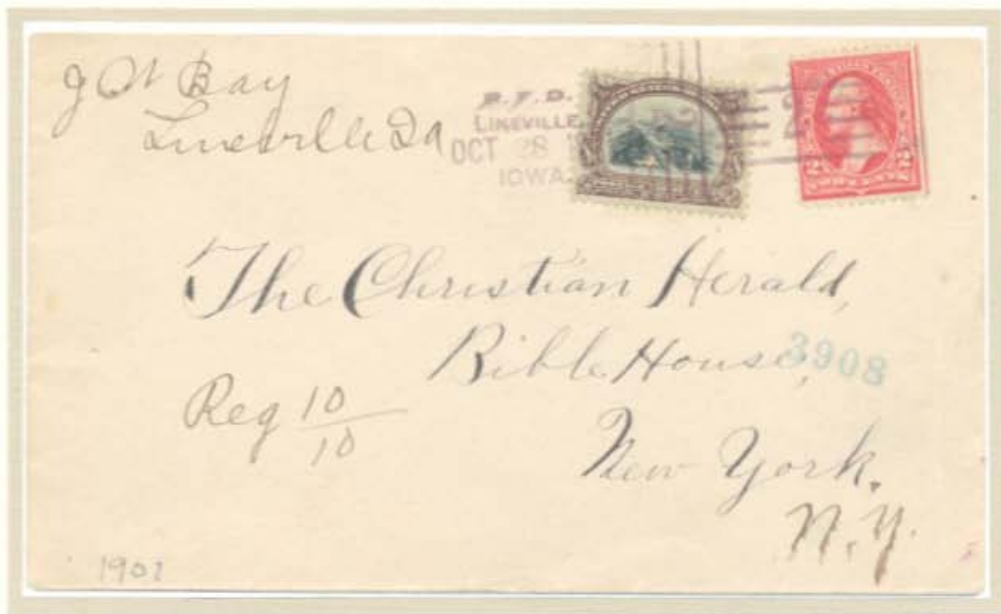 J W Bay
Lineville Ia
R.F.D.
LINEVILLE,
OCT 28 1
IOWA.
2
TWO CENTS
The Christian Herald,
Bible House,
3908
Reg 10/10
New York.
N.Y.
1901